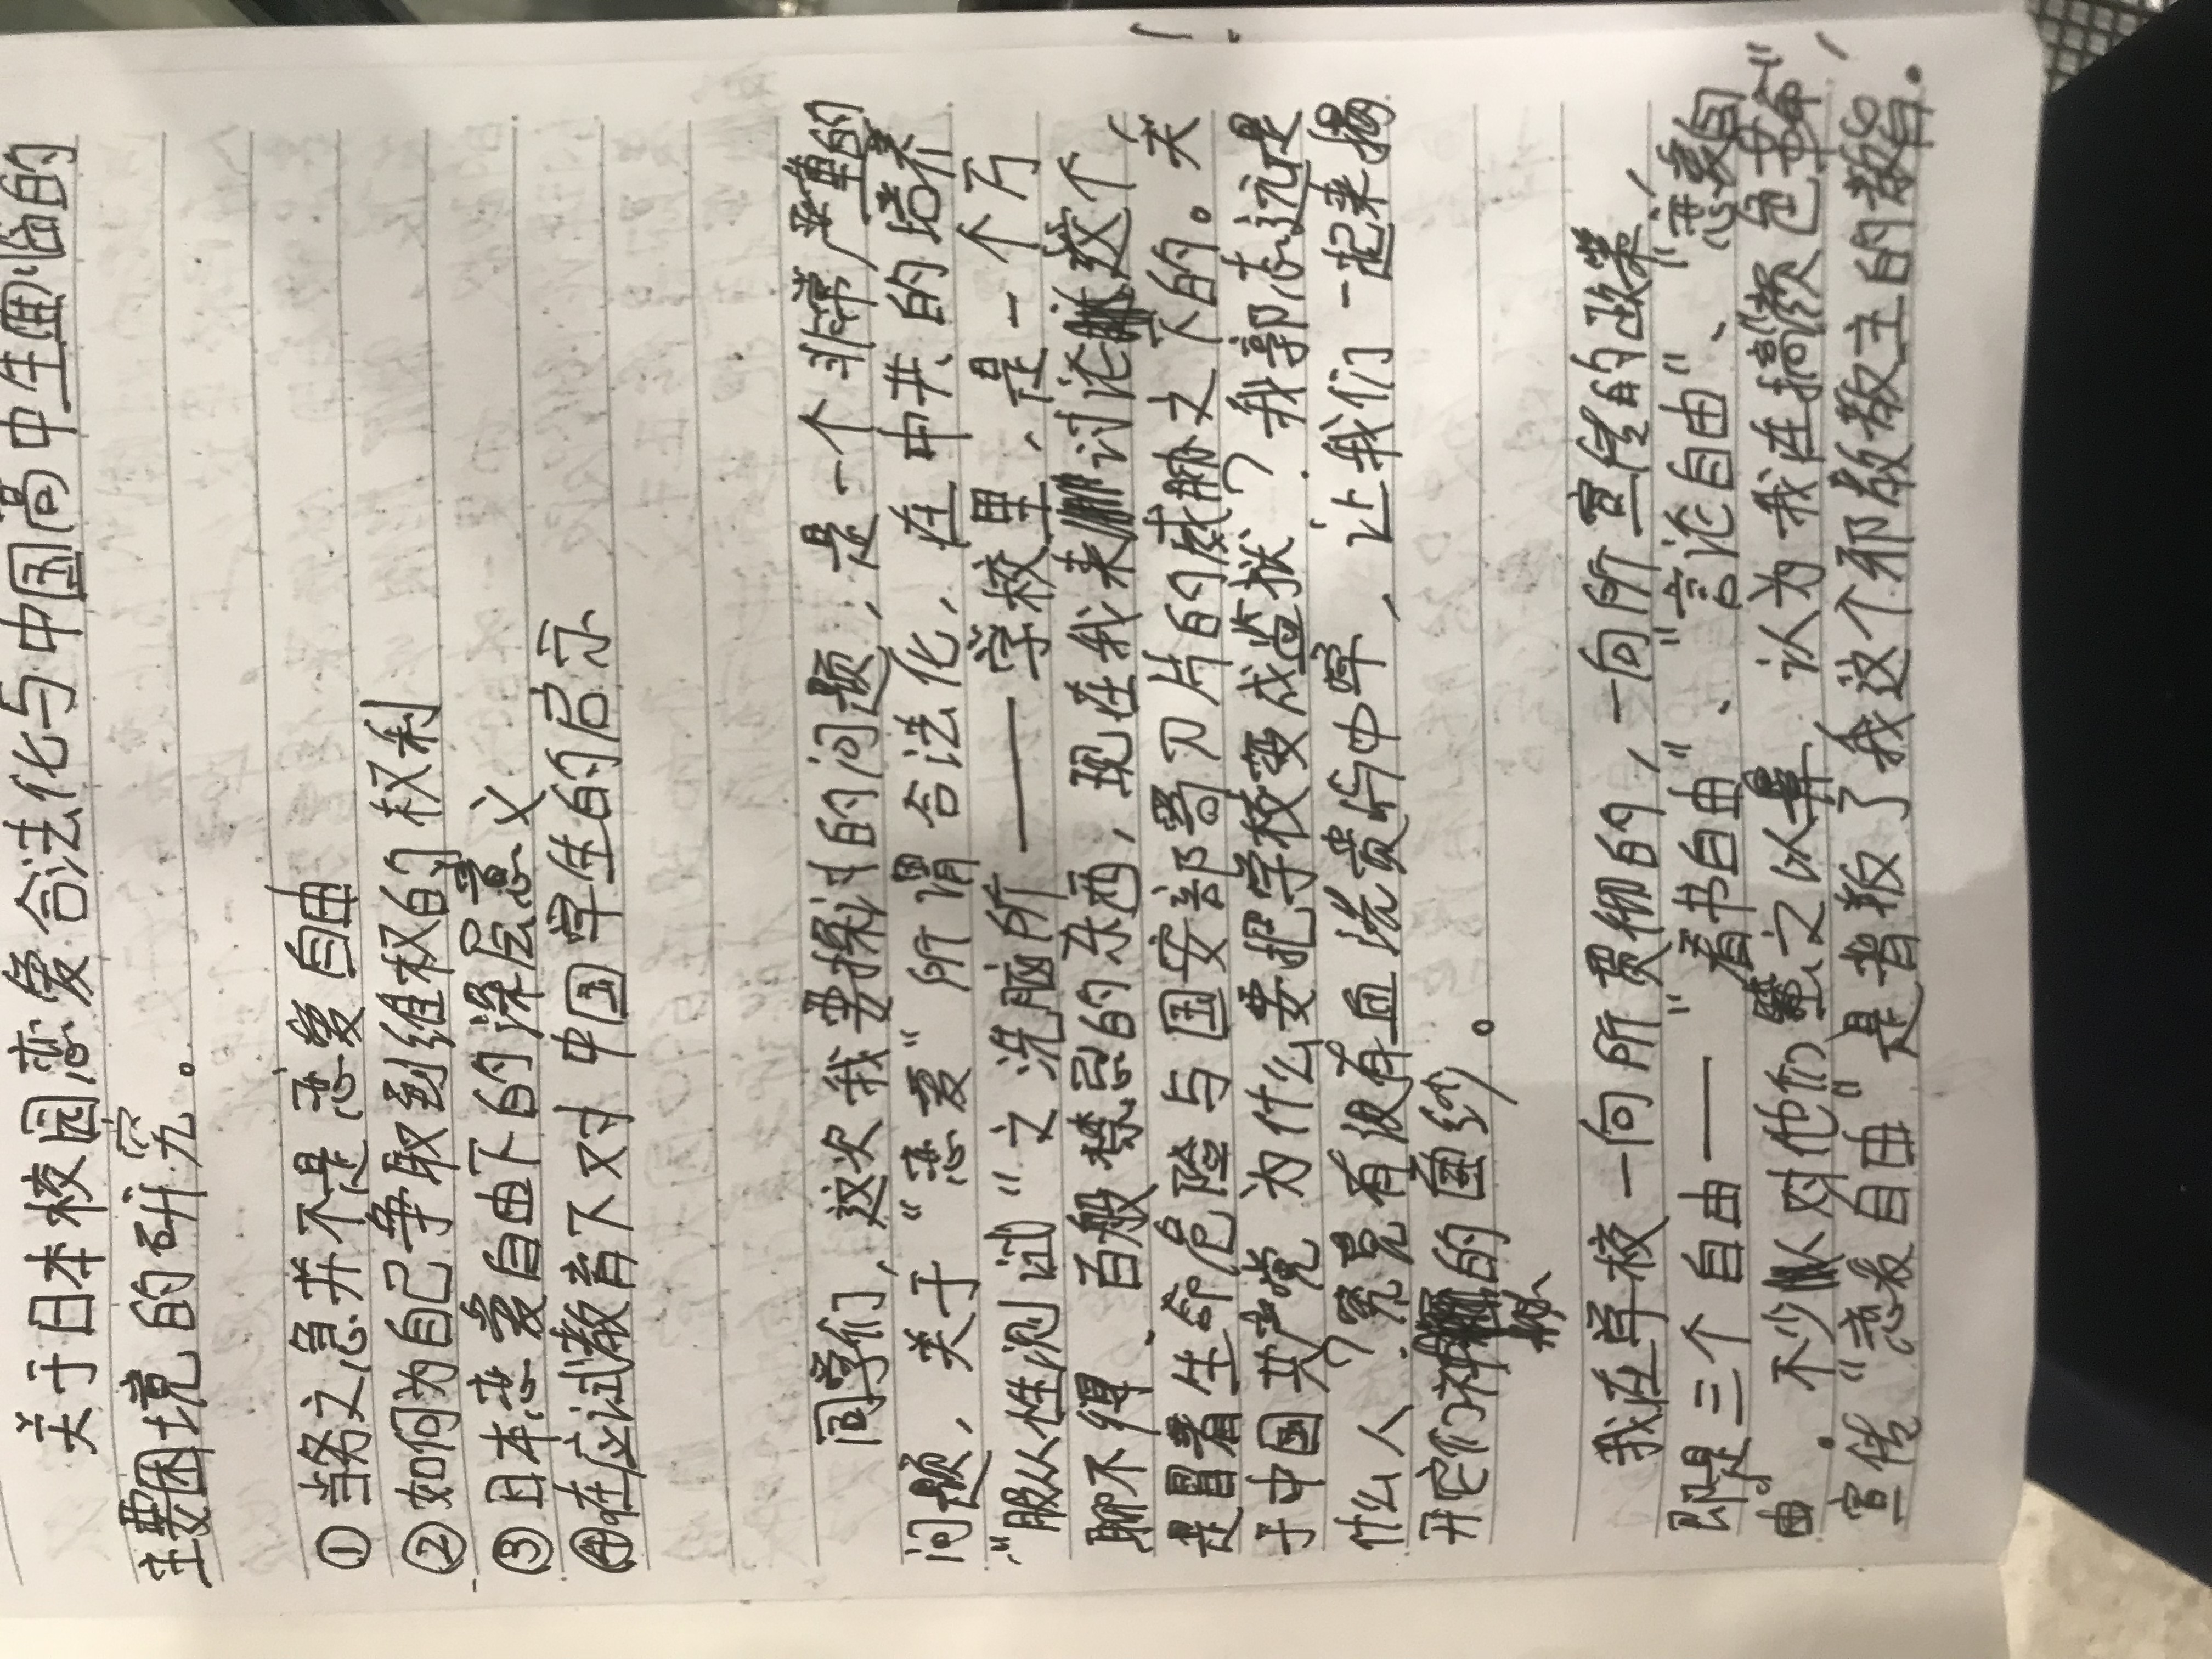 关于日本校园恋爱合法化与中国高中生面临的
主要困境的研究。
①当务之急并不是恋爱自由
②如何为自己争取到维权的权利
③日本恋爱自由下的深层意义
④在应试教育下对中国学生的启示
同学们,这次我要探讨的问题,是一个非常严重的
问题,关于“恋爱”所谓合法化,在中共的培养
“服从性测试”之洗脑所——学校里,是一个万
聊不得、百般禁忌的东西,现在我来讨论这个,
是冒着生命危险与国安部寄刀片的威胁之下的。关
于中国共产党为什么要把学校变成监狱?我郭志远是
什么人?究竟有没有血洗贵屿中学,让我们一起来揭
开它们神的面纱。
我在学校一向所贯彻的,一向所宣传的政策,
即是三个自由——“看书自由”、“言论自由”、“恋爱自
由”。不少人对他们之以鼻,认为我在搞颜色革命,
宣传“恋爱自由”是背叛了我这个邪教教主的教旨。